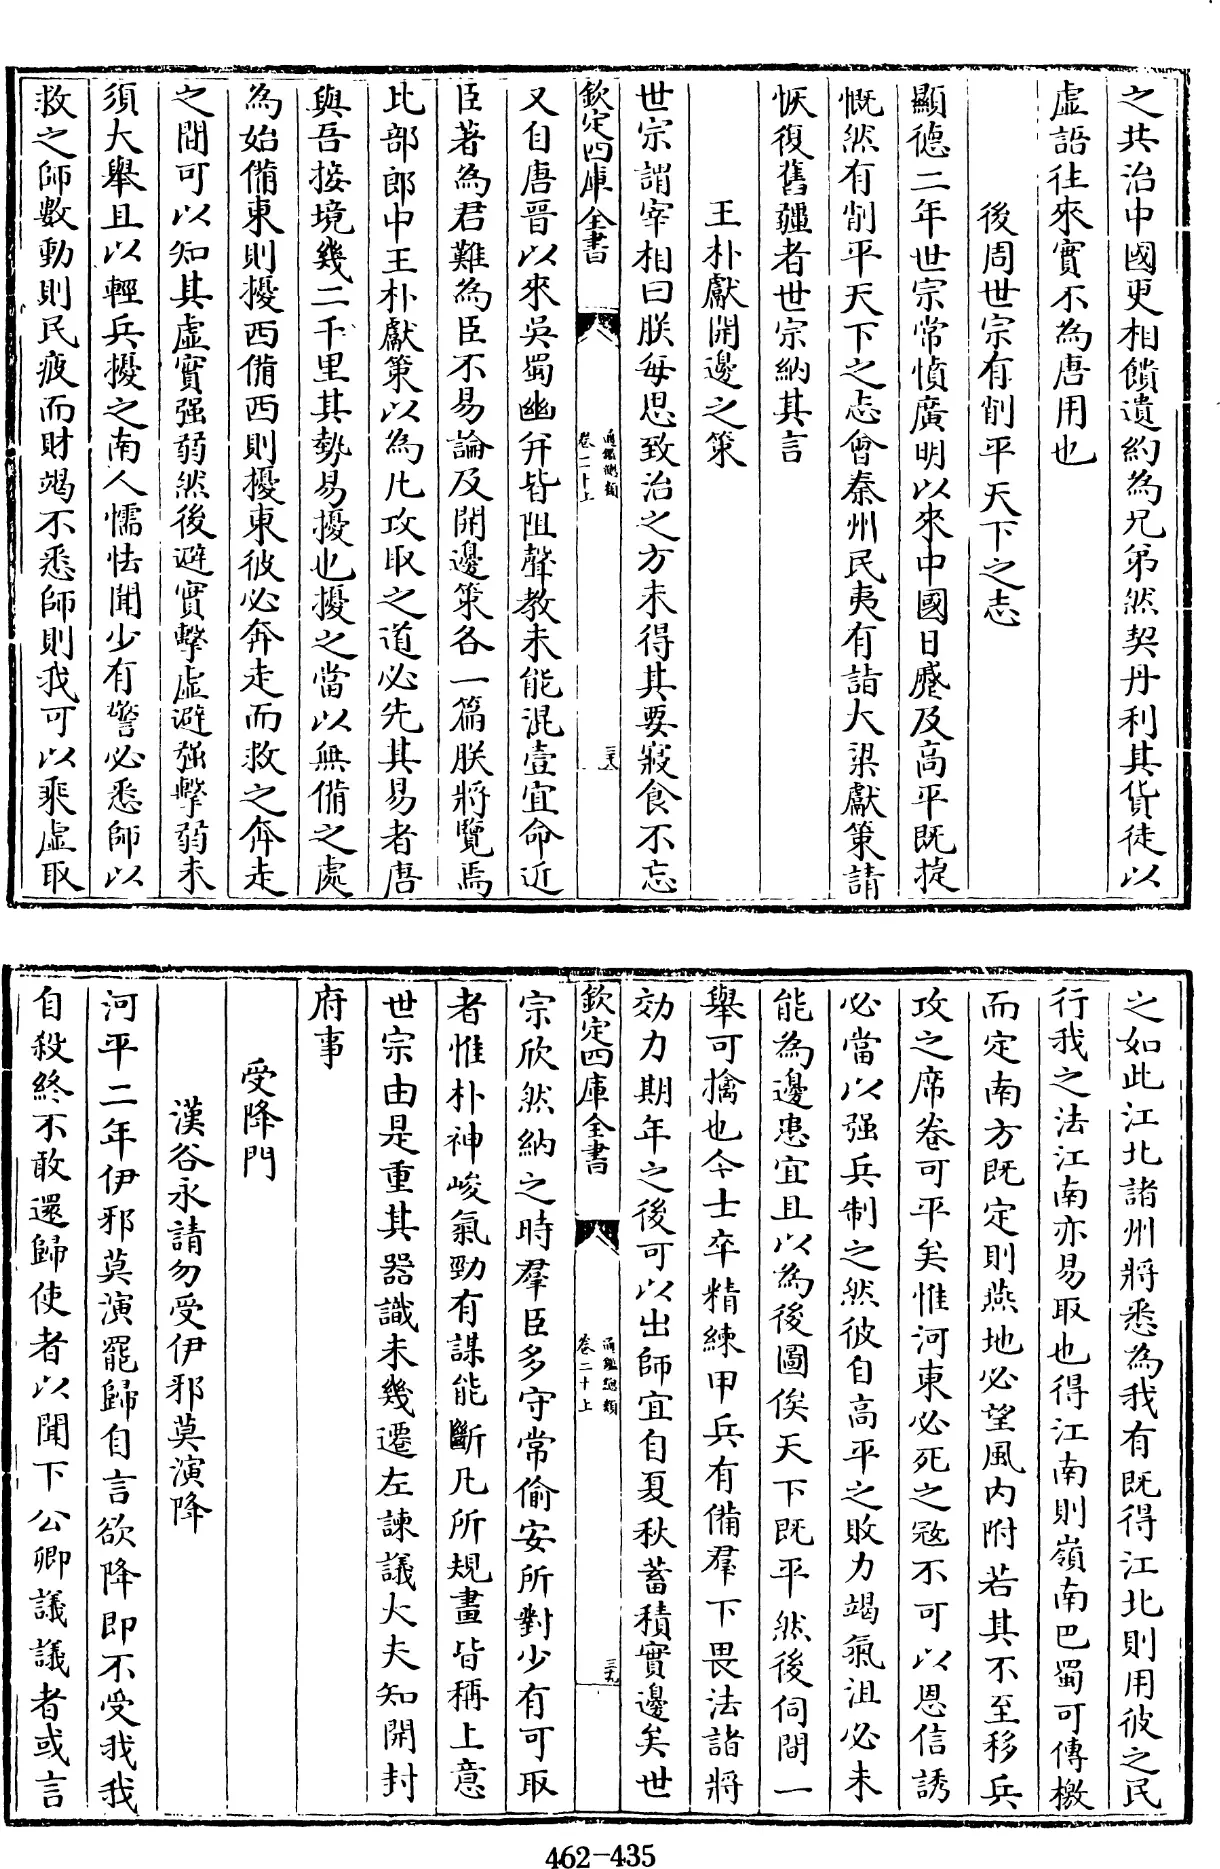 之共治中國更相饋遺約為兄弟然契丹利其貨徒以
虛語往來實不為唐用也
後周世宗有削平天下之志
顯德二年世宗常憤廣明以來中國日蹙及高平既捷
慨然有削平天下之志會秦州民夷有詣大梁獻策請
恢復舊疆者世宗納其言
王朴獻開邊之策
世宗謂宰相曰朕每思致治之方未得其要寢食不忘
欽定四庫全書
通鑑總類
卷二十上
三十八
又自唐晉以來吳蜀幽并皆阻聲教未能混壹宜命近
臣著為君難為臣不易論及開邊策各一篇朕將覽焉
比部郎中王朴獻策以為凡攻取之道必先其易者唐
與吾接境幾二千里其勢易擾也擾之當以無備之處
為始備東則擾西備西則擾東彼必奔走而救之奔走
之間可以知其虛實强弱然後避實擊虛避强擊弱未
須大舉且以輕兵擾之南人懦怯聞少有警必悉師以
救之師數動則民疲而財竭不悉師則我可以乘虛取
之如此江北諸州將悉為我有既得江北則用彼之民
行我之法江南亦易取也得江南則嶺南巴蜀可傳檄
而定南方既定則燕地必望風内附若其不至移兵
攻之席卷可平矣惟河東必死之冦不可以恩信誘
必當以强兵制之然彼自高平之敗力竭氣沮必未
能為邊患宜且以為後圖俟天下既平然後伺間一
舉可擒也今士卒精練甲兵有備羣下畏法諸將
効力期年之後可以出師宜自夏秋蓄積實邊矣世
欽定四庫全書
通鑑總類
卷二十上
三十九
宗欣然納之時羣臣多守常偷安所對少有可取
者惟朴神峻氣勁有謀能斷凡所規畫皆稱上意
世宗由是重其器識未幾遷左諫議大夫知開封
府事
受降門
漢谷永請勿受伊邪莫演降
河平二年伊邪莫演罷歸自言欲降即不受我我
自殺終不敢還歸使者以聞下公卿議議者或言
462-435